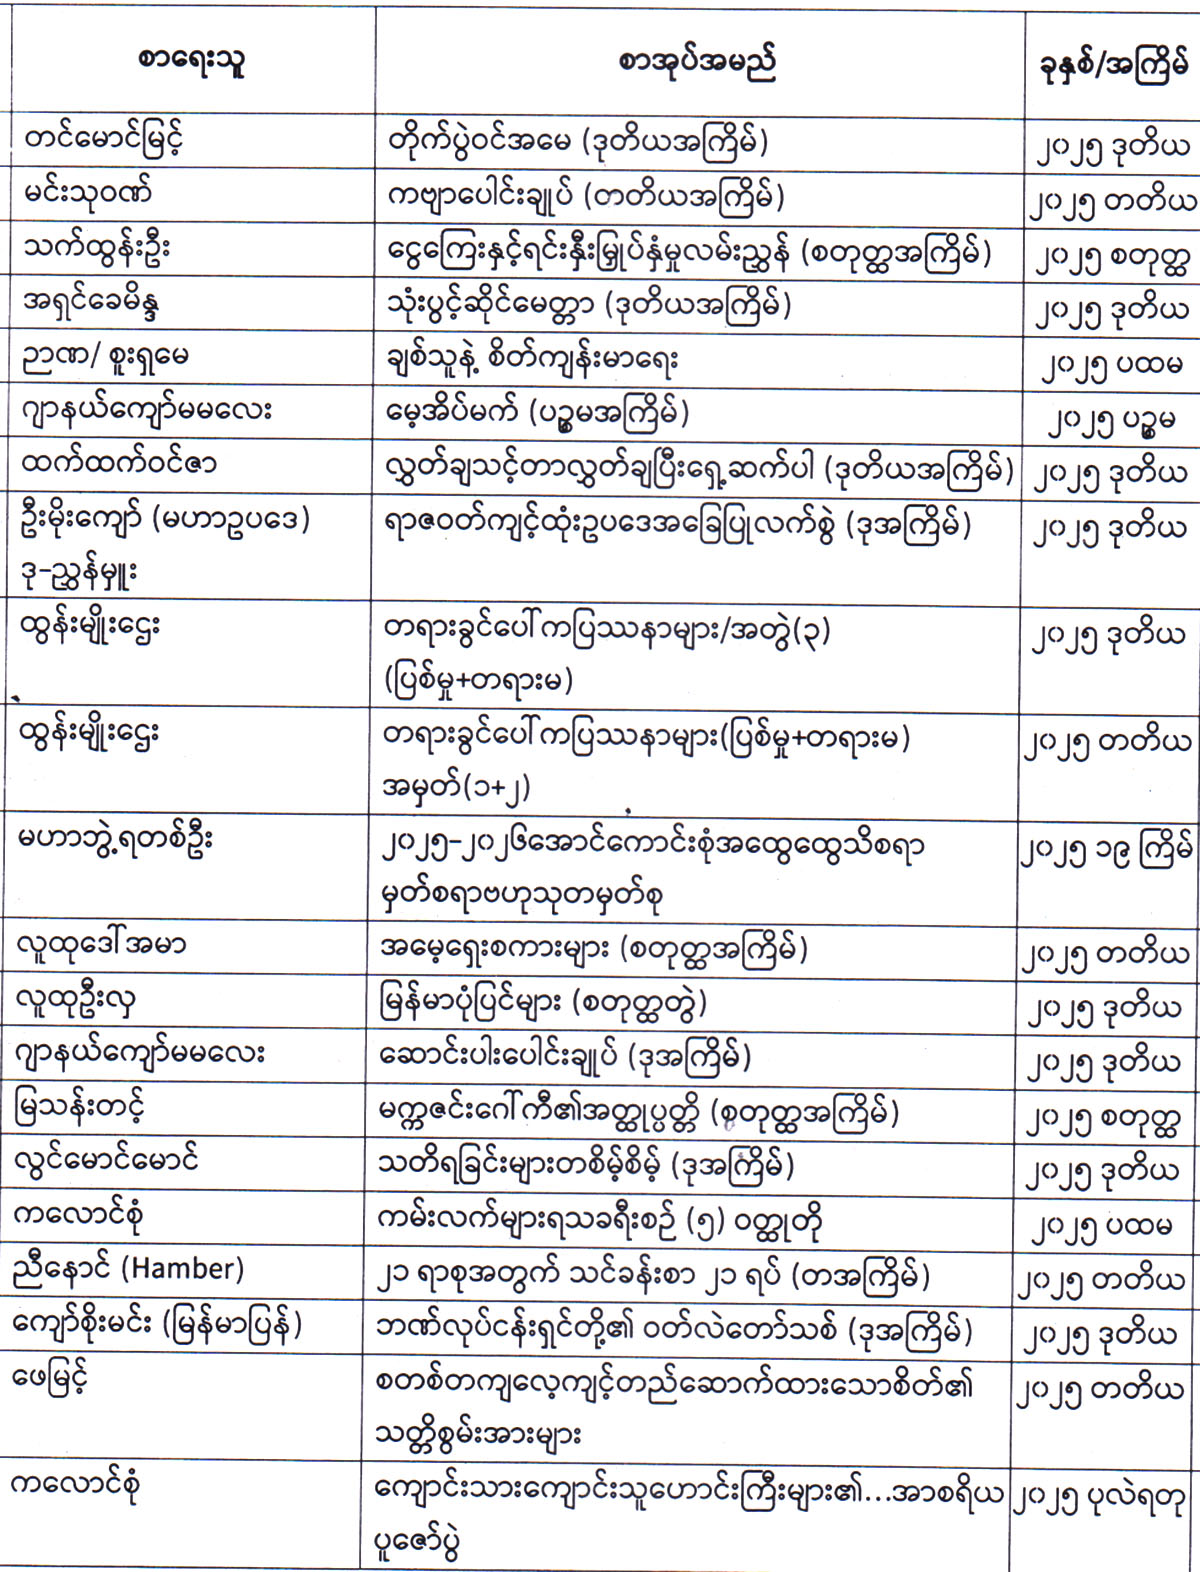 စာရေးသူ စာအုပ်အမည် ခုနှစ်/အကြိမ်
တင်မောင်မြင့် တိုက်ပွဲဝင်အမေ (ဒုတိယအကြိမ်) ၂၀၂၅ ဒုတိယ
မင်းသုဝဏ် ကဗျာပေါင်းချုပ် (တတိယအကြိမ်) ၂၀၂၅ တတိယ
သက်ထွန်းဦး ငွေကြေးနှင့်ရင်းနှီးမြှုပ်နှံမှုလမ်းညွှန် (စတုတ္ထအကြိမ်) ၂၀၂၅ စတုတ္ထ
အရှင်ခေမိန္ဒ သုံးပွင့်ဆိုင်မေတ္တာ (ဒုတိယအကြိမ်) ၂၀၂၅ ဒုတိယ
ဉာဏ/ စူးရှမေ ချစ်သူနဲ့ စိတ်ကျန်းမာရေး ၂၀၂၅ ပထမ
ဂျာနယ်ကျော်မမလေး မေ့အိပ်မက် (ပဉ္စမအကြိမ်) ၂၀၂၅ ပဉ္စမ
ထက်ထက်ဝင်ဇာ လွှတ်ချသင့်တာလွှတ်ချပြီးရှေ့ဆက်ပါ (ဒုတိယအကြိမ်) ၂၀၂၅ ဒုတိယ
ဦးမိုးကျော် (မဟာဥပဒေ) ရာဇဝတ်ကျင့်ထုံးဥပဒေအခြေပြုလက်စွဲ (ဒုအကြိမ်) ၂၀၂၅ ဒုတိယ
ဒု-ညွှန်မှူး
ထွန်းမျိုးဌေး တရားခွင်ပေါ်ကပြဿနာများ/အတွဲ(၃) ၂၀၂၅ ဒုတိယ
(ပြစ်မှု+တရားမ)
ထွန်းမျိုးဌေး တရားခွင်ပေါ်ကပြဿနာများ(ပြစ်မှု+တရားမ) ၂၀၂၅ တတိယ
အမှတ်(၁+၂)
မဟာဘွဲ့ရတစ်ဦး ၂၀၂၅-၂၀၂၆အောင်ကောင်းစုံအထွေထွေသိစရာ ၂၀၂၅ ၁၉ ကြိမ်
မှတ်စရာဗဟုသုတမှတ်စု
လူထုဒေါ်အမာ အမေ့ရှေးစကားများ (စတုတ္ထအကြိမ်) ၂၀၂၅ တတိယ
လူထုဦးလှ မြန်မာပုံပြင်များ (စတုတ္ထတွဲ) ၂၀၂၅ ဒုတိယ
ဂျာနယ်ကျော်မမလေး ဆောင်းပါးပေါင်းချုပ် (ဒုအကြိမ်) ၂၀၂၅ ဒုတိယ
မြသန်းတင့် မက္ကဇင်းဂေါ်ကီ၏အတ္ထုပ္ပတ္တိ (စတုတ္ထအကြိမ်) ၂၀၂၅ စတုတ္ထ
လွင်မောင်မောင် သတိရခြင်းများတစိမ့်စိမ့် (ဒုအကြိမ်) ၂၀၂၅ ဒုတိယ
ကလောင်စုံ ကမ်းလက်များရသခရီးစဉ် (၅) ဝတ္ထုတို ၂၀၂၅ ပထမ
ညီနောင် (Hamber) ၂၁ ရာစုအတွက် သင်ခန်းစာ ၂၁ ရပ် (တအကြိမ်) ၂၀၂၅ တတိယ
ကျော်စိုးမင်း (မြန်မာပြန်) ဘဏ်လုပ်ငန်းရှင်တို့၏ ဝတ်လဲတော်သစ် (ဒုအကြိမ်) ၂၀၂၅ ဒုတိယ
ဖေမြင့် စတစ်တကျလေ့ကျင့်တည်ဆောက်ထားသောစိတ်၏ ၂၀၂၅ တတိယ
သတ္တိစွမ်းအားများ
ကလောင်စုံ ကျောင်းသားကျောင်းသူဟောင်းကြီးများ၏...အာစရိယ ၂၀၂၅ ပုလဲရတု
ပူဇော်ပွဲ